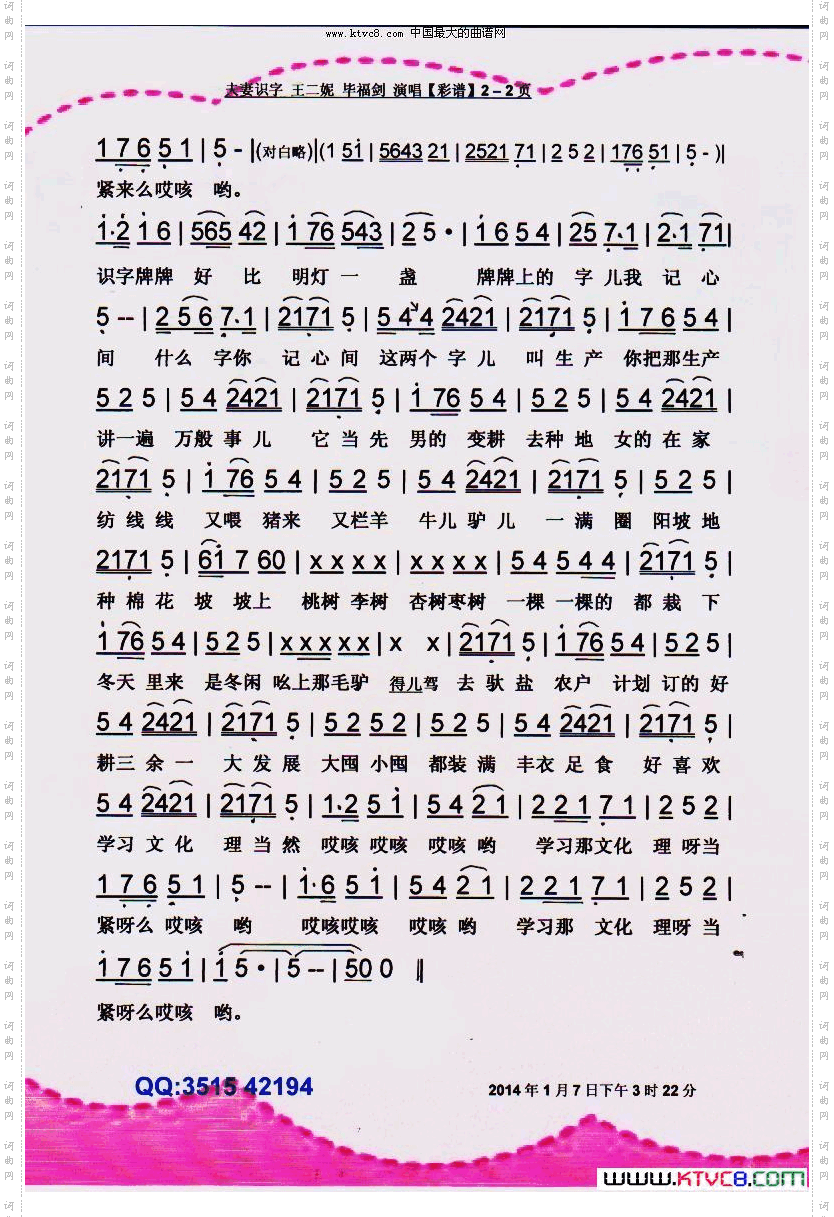 www.ktvc8.com 中国最大的曲谱网
夫妻识字 王二妮 毕福剑 演唱【彩谱】2－2页
1 7 6 5 1 | 5 - |(对白略)|(1 5 1 | 5643 21 | 2521 71 | 2 5 2 | 176 51 | 5 - )|
紧来么哎咳 哟。
1·2 1 6 | 565 42 | 1 76 543 | 2 5 · | 1 6 5 4 | 25 7·1 | 2·1 71 |
识字牌牌 好 比 明灯 一 盏 牌牌上的 字 儿我 记 心
5 -- | 2 5 6 7·1 | 2171 5 | 5 4 4 2421 | 2171 5 | 1 7 6 5 4 |
间 什么 字你 记 心 间 这两个 字 儿 叫 生 产 你把那生产
5 2 5 | 5 4 2421 | 2171 5 | 1 76 5 4 | 5 2 5 | 5 4 2421 |
讲一遍 万般 事 儿 它 当 先 男的 变耕 去种 地 女的 在 家
2171 5 | 1 76 5 4 | 5 2 5 | 5 4 2421 | 2171 5 | 5 2 5 |
纺 线 线 又喂 猪来 又栏羊 牛儿 驴 儿 一 满 圈 阳坡 地
2171 5 | 61 7 60 | x x x x | x x x x | 5 4 5 4 4 | 2171 5 |
种 棉 花 坡 坡上 桃树 李树 杏树枣树 一棵 一棵的 都 栽 下
1 76 5 4 | 5 2 5 | x x x x x | x x | 2171 5 | 1 76 5 4 | 5 2 5 |
冬天 里来 是冬闲 吆上那毛驴 得儿驾 去 驮 盐 农户 计划 订的 好
5 4 2421 | 2171 5 | 5 2 5 2 | 5 2 5 | 5 4 2421 | 2171 5 |
耕三 余 一 大 发 展 大囤 小囤 都装 满 丰衣 足 食 好 喜 欢
5 4 2421 | 2171 5 | 1·2 5 1 | 5 4 21 | 2 2 1 7 1 | 2 5 2 |
学习 文 化 理 当 然 哎咳 哎咳 哎咳 哟 学习那文化 理 呀当
1 7 6 5 1 | 5 -- | 1·6 5 1 | 5 4 2 1 | 2 2 1 7 1 | 2 5 2 |
紧呀么 哎咳 哟 哎咳哎咳 哎咳 哟 学习那 文化 理呀 当
1 7 6 5 1 | 1 5 · | 5 -- | 50 0 ‖
紧呀么哎咳 哟。
QQ:3515 42194
2014 年 1 月 7 日下午 3 时 22 分
www.KTVC8.com